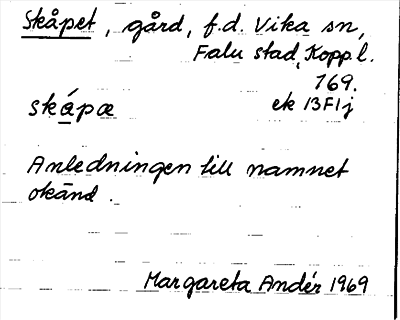 Skåpet, gård, f.d. Vika sn,
Falu stad, Kopp.l.
169.
skåpæ ek 13F1j
Anledningen till namnet
okänd.
Margareta Andér 1969